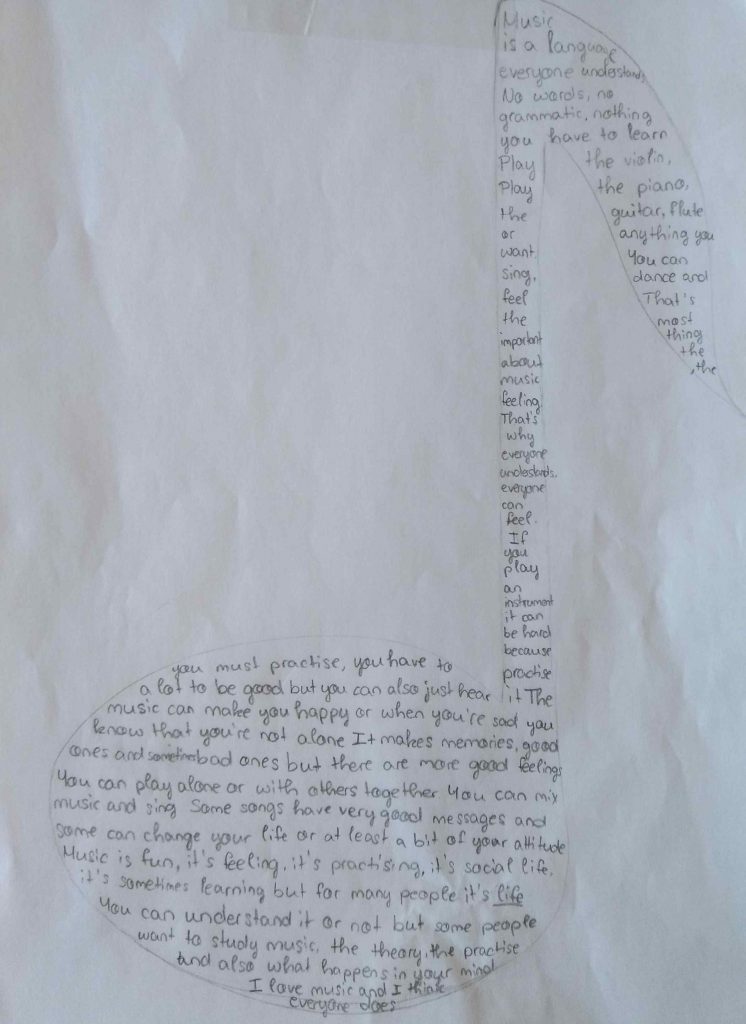 Music
is a language
everyone understands
No words, no
grammatic, nothing
you have to learn
Play the violin,
Play the piano,
the guitar, flute
or anything you
want. You can
sing, dance and
feel That's
the most
important thing
about the
music ,the
feeling.
That's
why
everyone
understands.
everyone
can
feel.
If
you
play
an
instrument
it can
be hard
because
you must practise, you have to practise
a lot to be good but you can also just hear it The
music can make you happy or when you're sad you
know that you're not alone It makes memories, good
ones and sometimes bad ones but there are more good feelings
You can play alone or with others together You can mix
music and sing Some songs have very good messages and
some can change your life or at least a bit of your attitude
Music is fun, it's feeling, it's practising, it's social life,
it's sometimes learning but for many people it's life
You can understand it or not but some people
want to study music, the theory, the practise
and also what happens in your mind
I love music and I think
everyone does